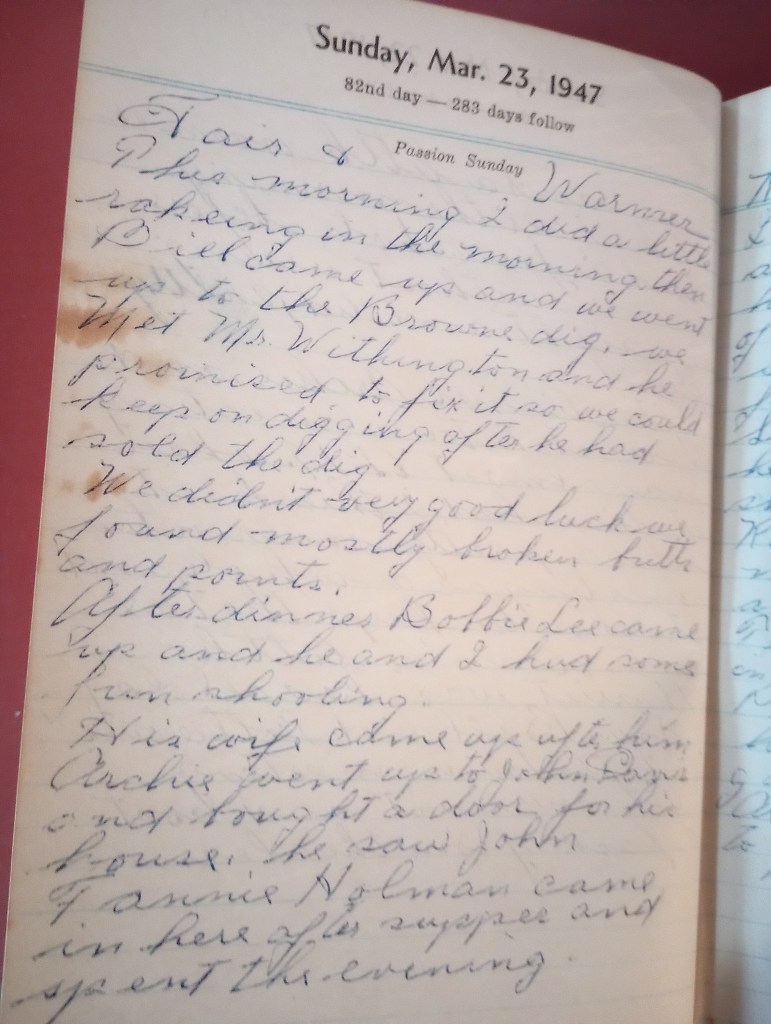 Sunday, Mar. 23, 1947
82nd day — 283 days follow
Passion Sunday
Fair & Warmer
This morning I did a little
rakeing in the morning then
Bill came up and we went
up to the Browne dig, we
Met Mr. Withington and he
promised to fix it so we could
keep on digging after he had
sold the dig.
We didn't very good luck we
found mostly broken butts
and points.
After dinner Bobbie Lee came
up and he and I had some
fun shooting.
His wife came up after him
Archie went up to John
and bought a door for his
house, he saw John
Fannie Holman came
in here after supper and
spent the evening.